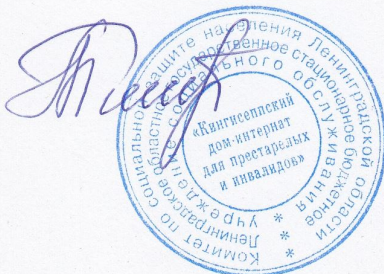 Комитет по социальной защите населения Ленинградской области
Ленинградское областное государственное стационарное бюджетное
учреждение социального обслуживания
«Кингисеппский
дом-интернат
для престарелых
и инвалидов»